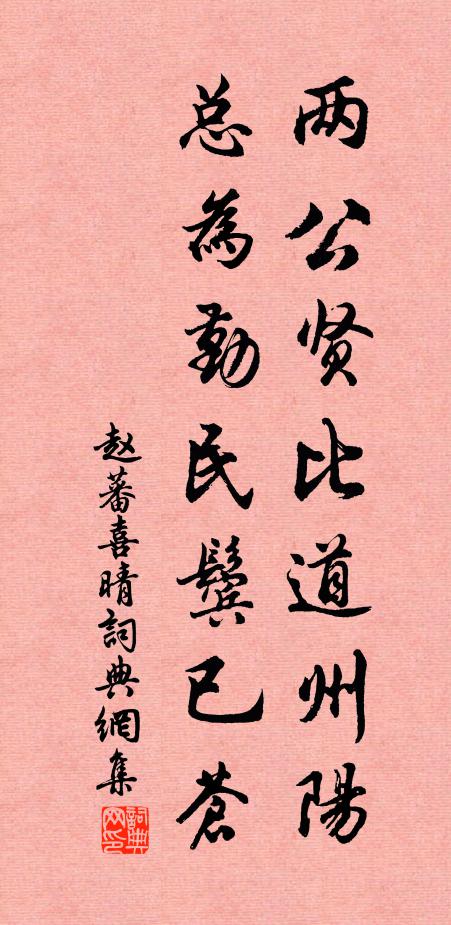 两公贤比道州阳
总为勤民鬓已苍
赵蕃喜晴词典網集
詞典网印